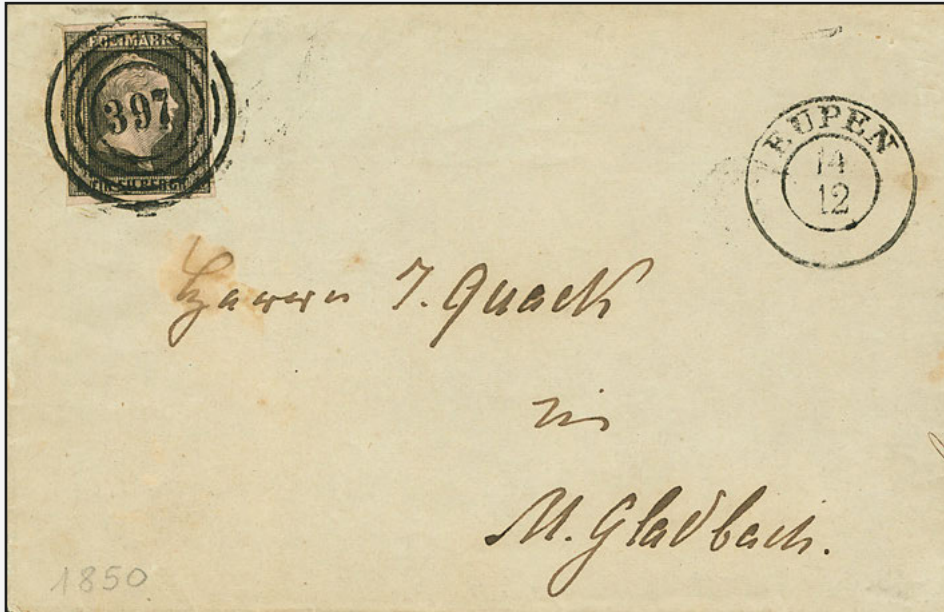 FREIMARKE
397
EIN SILBERGR.
EUPEN
14
12
Herrn J. Quack
in
M. Gladbach.
1850